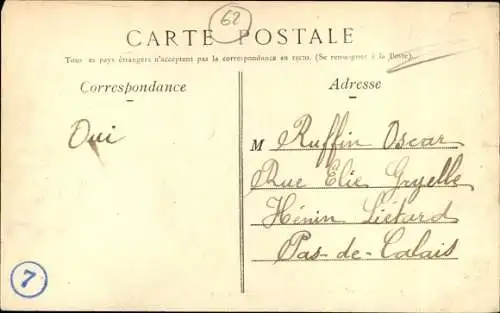 62
CARTE POSTALE
Tous les pays étrangers n'acceptent pas la correspondance au recto. (Se renseigner à la Poste).
Correspondance
Adresse
Oui
M Ruffin Oscar
Rue Elie Gruyelle
Hénin Liétard
Pas-de-Calais
7